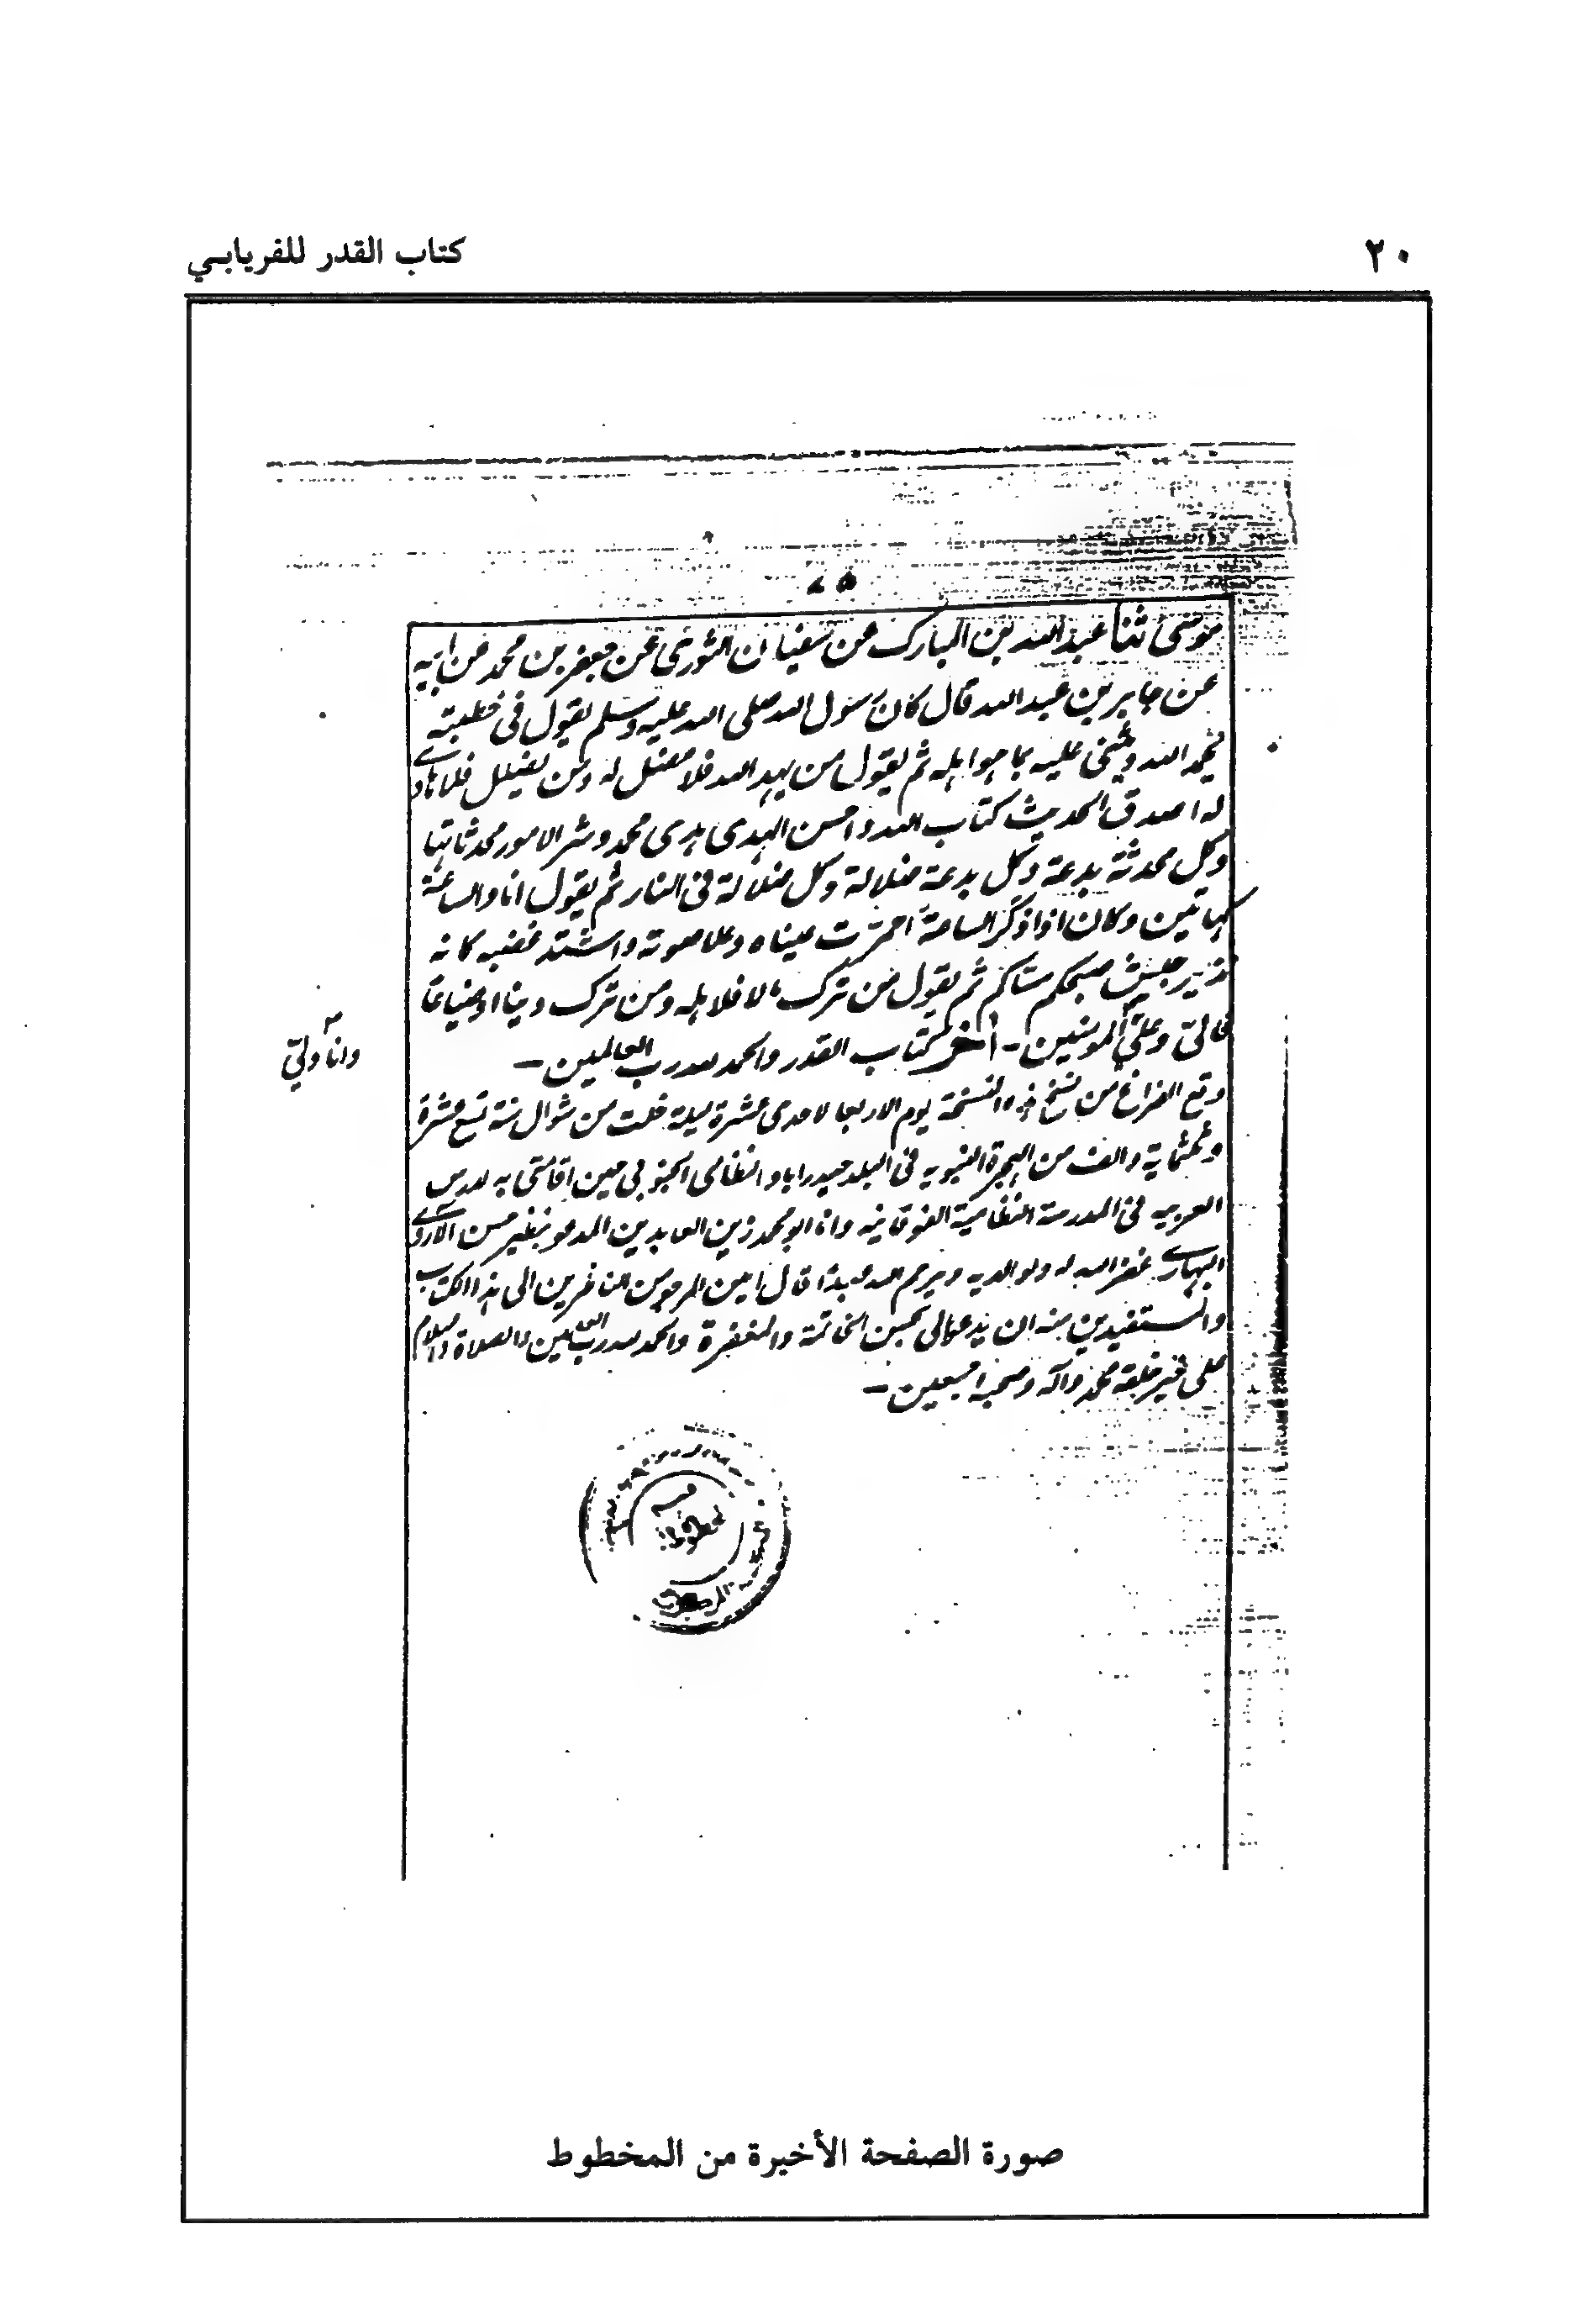 ٢٠
كتاب القدر للفريابي
موسى ثنا عبد الله بن المبارك عن سفيان الثوري عن جعفر بن محمد عن ابيه
عن جابر بن عبد الله قال كان رسول الله صلى الله عليه وسلم يقول في خطبته
نحمد الله ونثني عليه بما هو اهله ثم يقول من يهد الله فلا مضل له ومن يضلل فلا هادي
له اصدق الحديث كتاب الله واحسن الهدى هدى محمد وشر الامور محدثاتها
وكل محدثة بدعة وكل بدعة ضلالة وكل ضلالة في النار ثم يقول انا والساعة
كهاتين وكان اذا ذكر الساعة احمرت عيناه وعلا صوته واشتد غضبه كانه
نذير جيش صبحكم مساكم ثم يقول من ترك مالا فلاهله ومن ترك دينا او ضياعا
فالي وعلي المومنين - آخر كتاب القدر والحمد لله رب العالمين -
وانا ولي
وقع الفراغ من نسخ هذه النسخة يوم الاربعا لاحدى عشرة ليلة خلت من شوال سنة تسع عشرة
وثلثماية والف من الهجرة النبويه في البلد حيدراباد النظامى الجنوبي حين اقامتي به لدرس
العربيه في المدرسة النظامية الفوقانيه وانا ابو محمد زين العابدين المدعو الآروي
البهاري غفر الله له ولوالديه ويرحم الله عبدا قال امين المرجو من الناظرين الى هذا الكتاب
والمستفيدين منه ان يدعوا لي بحسن الخاتمة والمغفرة والحمد لله رب العالمين والصلاة والسلام
على خير خلقه محمد وآله وصحبه اجمعين -
صورة الصفحة الأخيرة من المخطوط